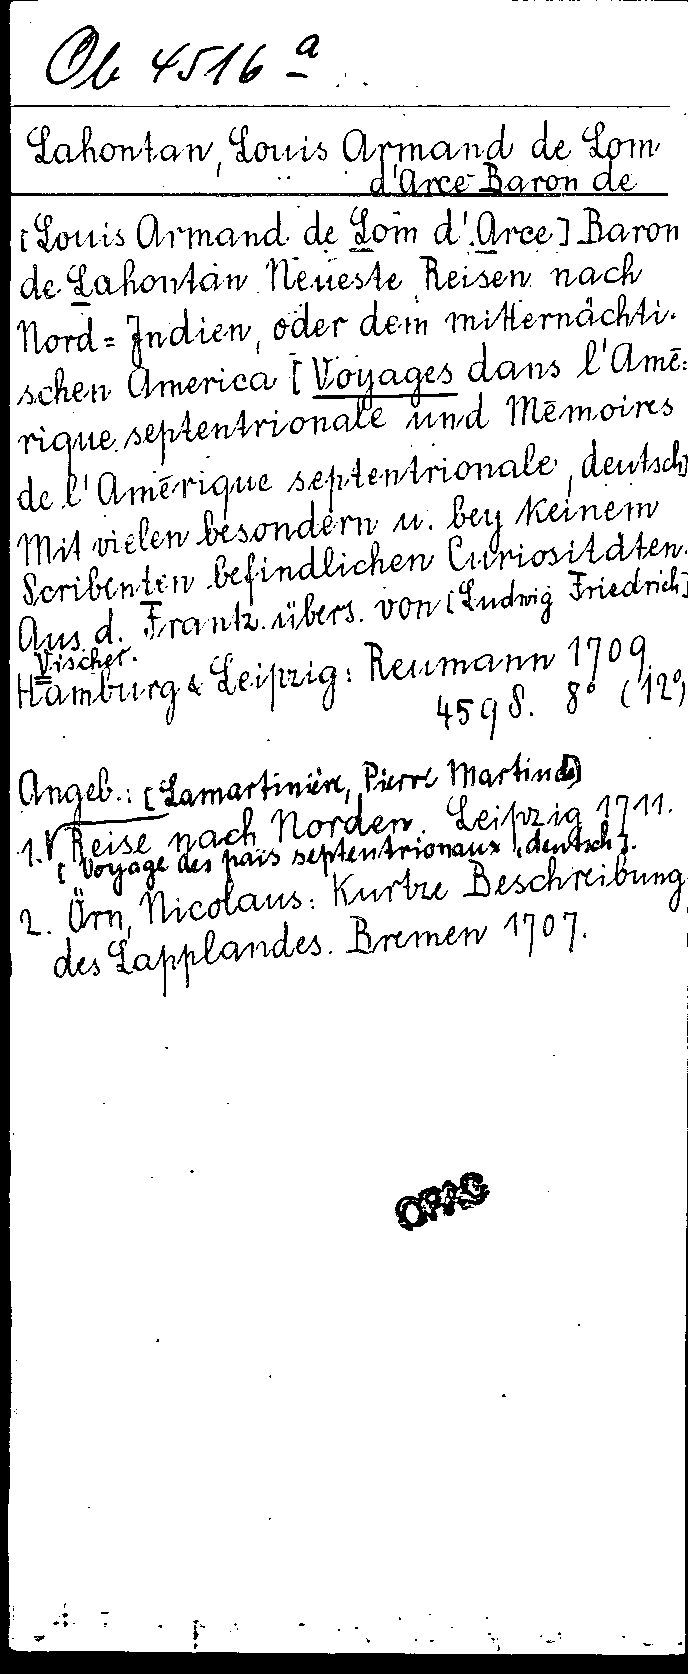 Ob 4516 a
Lahontan, Louis Armand de Lom
d'Arce Baron de
[Louis Armand de Lom d'Arce] Baron
de Lahontan Neueste Reisen nach
Nord=Indien, oder dem mitternächti-
schen America [Voyages dans l'Amé-
rique septentrionale und Mémoires
de l'Amérique septentrionale, deutsch]
Mit vielen besondern u. bey keinem
Scribenten befindlichen Curiositäten.
Aus d. Frantz. übers. von [Ludwig Friedrich]
Vischer.
Hamburg & Leipzig: Reumann 1709
459 S. 8° (12°)
Angeb.: [Lamartinière, Pierre Martin de]
1. Reise nach Norden. Leipzig 1711.
[Voyage des païs septentrionaux, deutsch].
2. Örn, Nicolaus: Kurtze Beschreibung
des Lapplandes. Bremen 1707.
OPAC